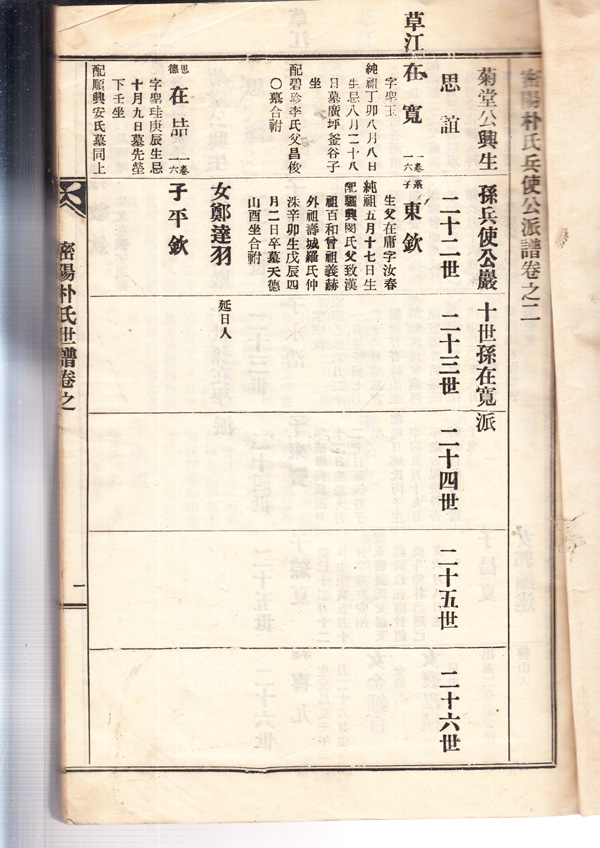 密陽朴氏兵使公派譜卷之二
菊堂公興生 孫兵使公巖 十世孫在寬派
思誼 二十二世 二十三世 二十四世 二十五世 二十六世
草江在寬
一卷系
一六
字聖玉
純祖丁卯八月八日
生忌八月二十八
日墓廣坪釜谷子
坐
配碧珍李氏父昌俊
〇墓合祔
子東欽
生父在庸字汝春
純祖五月十七日生
配驪興閔氏父致漢
祖百和曾祖義赫
外祖壽城羅氏仲
洙辛卯生戊辰四
月二日卒墓天德
山酉坐合祔
女鄭達羽
延日人
思德
在喆
一卷
一六
字聖珪庚辰生忌
十月九日墓先塋
下壬坐
配順興安氏墓同上
子平欽
密陽朴氏世譜卷之
一